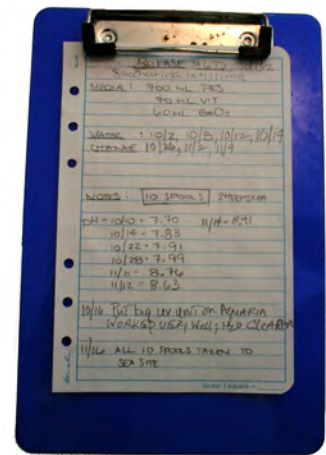 RELEASE
Saccharina latissima
MEDIA : 700 mL PES
70 mL VIT
60 mL GeO2
WATER : 10/2, 10/5, 10/12, 10/19
CHANGE 10/26, 11/2, 11/9
NOTES : 10 SPOOLS
pH = 10/10 = 7.70 11/14 = 8.91
10/14 = 7.83
10/22 = 7.91
10/28 = 7.99
11/11 = 8.76
11/12 = 8.63
10/16 Put big UV unit on AQUARIA
WORKED VERY WELL; H2O CLEARER
11/16 ALL 10 SPOOLS TAKEN TO
SEA SITE